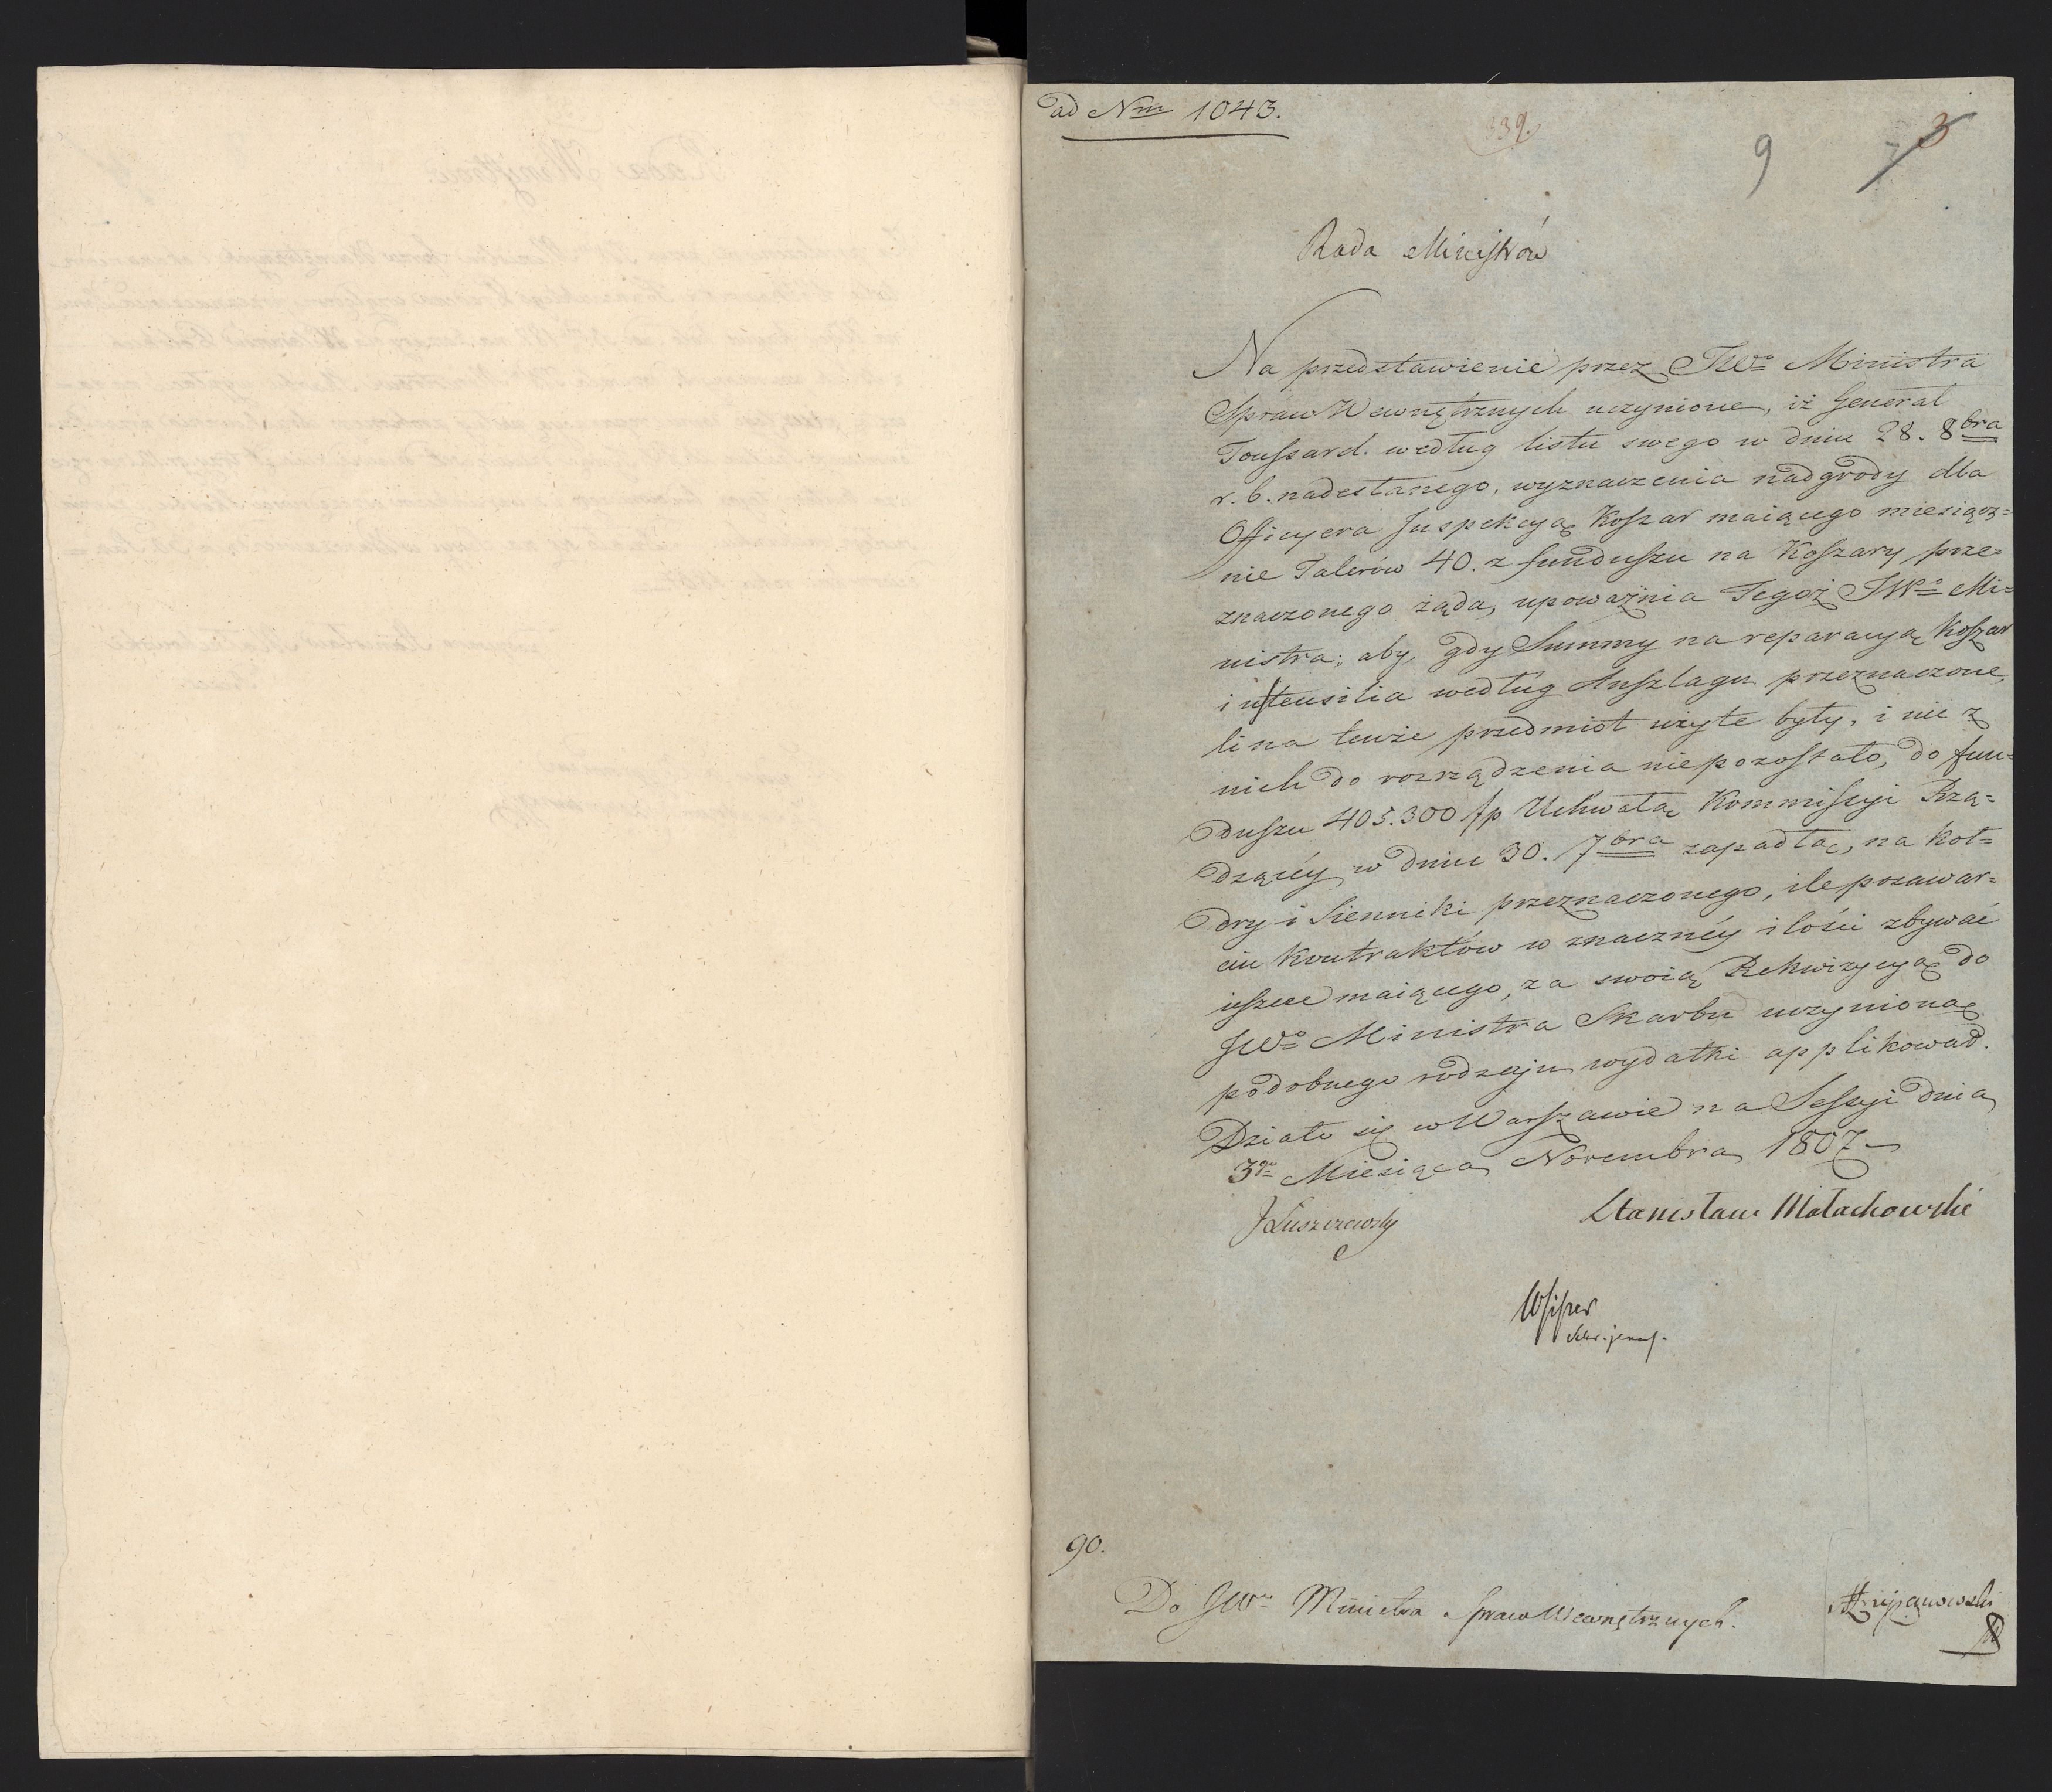 ad Nrm 1043.
339.
9
3
Rada Ministrów
Na przedstawienie przez JWo Ministra
Spraw Wewnętrznych uczynione, iż Generał
Toussard. według listu swego w dniu 28. 8bra
r. b. nadesłanego, wyznaczenia nadgrody dla
Officyera Inspekcyą Koszar maiącego miesiącz=
nie Talerów 40. z funduszu na Koszary prze=
znaczonego żąda, upoważnia Tegoż JWo Mi=
nistra; aby, gdy Summy na reparacyą Koszar
i utensilia według Anszlagu przeznaczone,
li na tenże przedmiot użyte były, i nic z
nich do rozrządzenia niepozostało, do fun=
duszu 405.300 fp Uchwałą Kommissyi Rzą=
dzącéy w dniu 30. 7bra zapadłą, na koł=
dry i Sienniki przeznaczonego, ile po zawar=
ciu Kontraktów w znacznéy ilości zbywać
ieszcze maiącego, za swoią Rekwizycyą do
JWo Ministra Skarbu uczynioną
podobnego rodzaju wydatki applikował.
Działo się w Warszawie na Sessyi dnia
3go Miesiąca Novembra 1807
JŁuszczewsky
Stanisław Małachowski
Sekr. jenl.
90.
Do JWo Ministra Spraw Wewnętrznych.